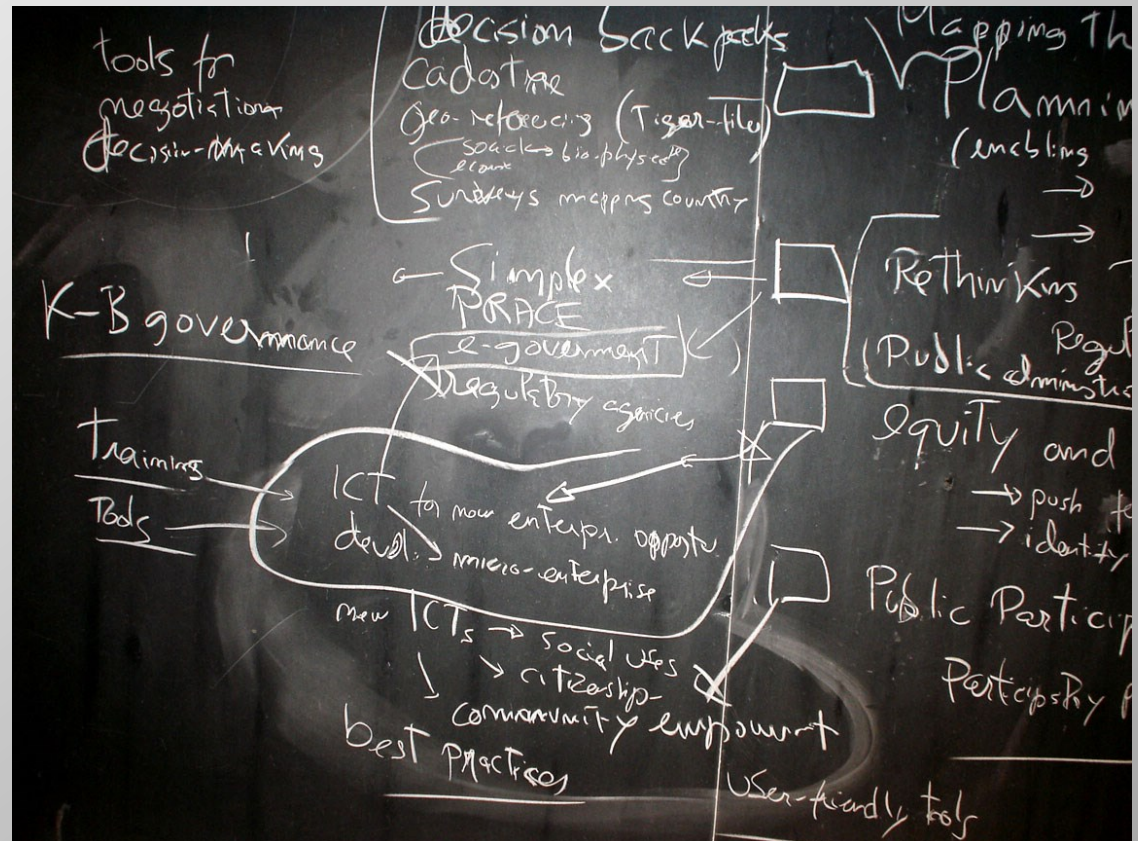 tools for
negotiation
decision-making
decision back packs
cadastre
geo-referencing (Tiger-file)
bio-physical
Surveys mapping country
Simplex
PRACE
e-goverment
regulatory agencies
K-B governance
Training
Tools
ICT for new enterpr. opportu
devel. micro-enterprise
new ICTs → social uses
citizenship
community empowerment
best practices
user-friendly tools
Mapping Th
Plannin
(enabling
→
→
ReThinking
Regul
Public administra
equity and
→ push te
→ identity
Public Particip
Participatory p